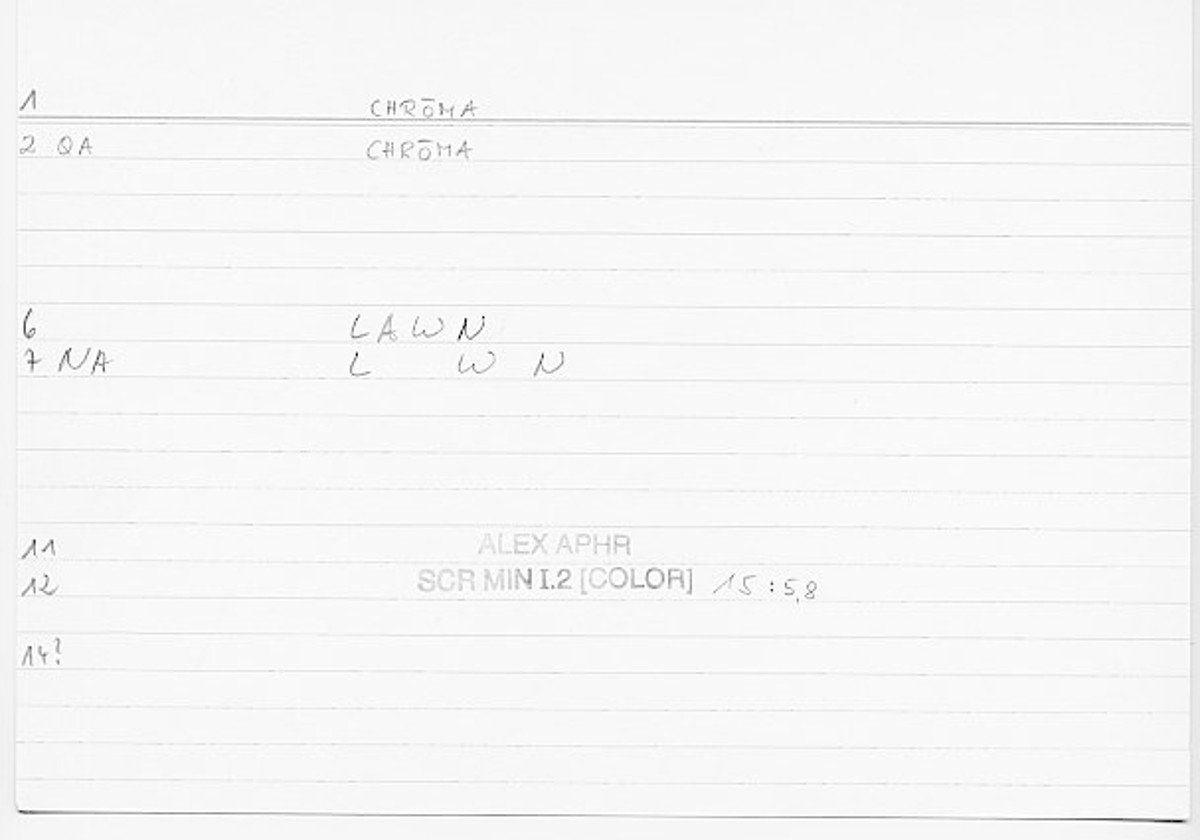 1 CHRŌMA
2 QA CHRŌMA
6 LAWN
7 NA L W N
11 ALEX APHR
12 SCR MIN I.2 [COLOR] 15:5,8
14?